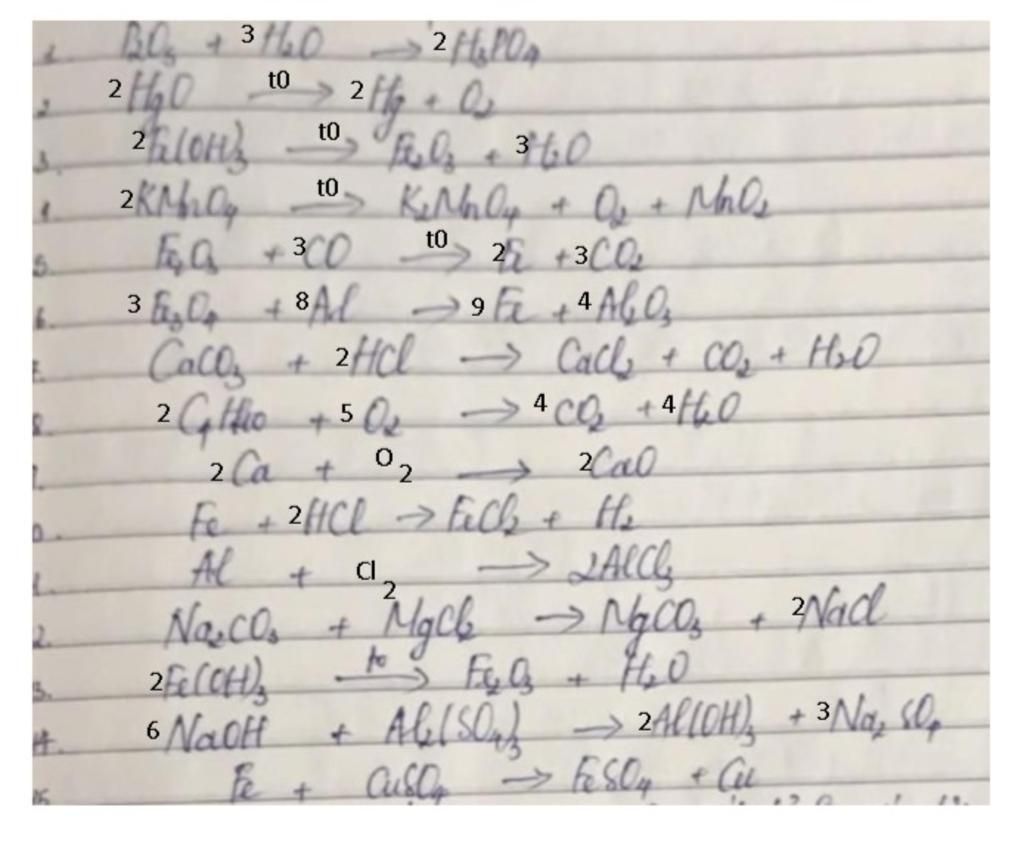 1. P2O5 + 3H2O → 2H3PO4
2. 2HgO t0→ 2Hg + O2
3. 2Fe(OH)3 t0→ Fe2O3 + 3H2O
4. 2KMnO4 t0→ K2MnO4 + O2 + MnO2
5. Fe2O3 + 3CO t0→ 2Fe + 3CO2
6. 3Fe3O4 + 8Al → 9Fe + 4Al2O3
7. CaCO3 + 2HCl → CaCl2 + CO2 + H2O
8. 2C4H10 + 5O2 → 4CO2 + 4H2O
2Ca + O2 → 2CaO
0. Fe + 2HCl → FeCl2 + H2
1. Al + Cl2 → 2AlCl3
2. Na2CO3 + MgCl2 → MgCO3 + 2NaCl
3. 2Fe(OH)3 to→ Fe2O3 + H2O
4. 6NaOH + Al2(SO4)3 → 2Al(OH)3 + 3Na2SO4
15. Fe + CuSO4 → FeSO4 + Cu